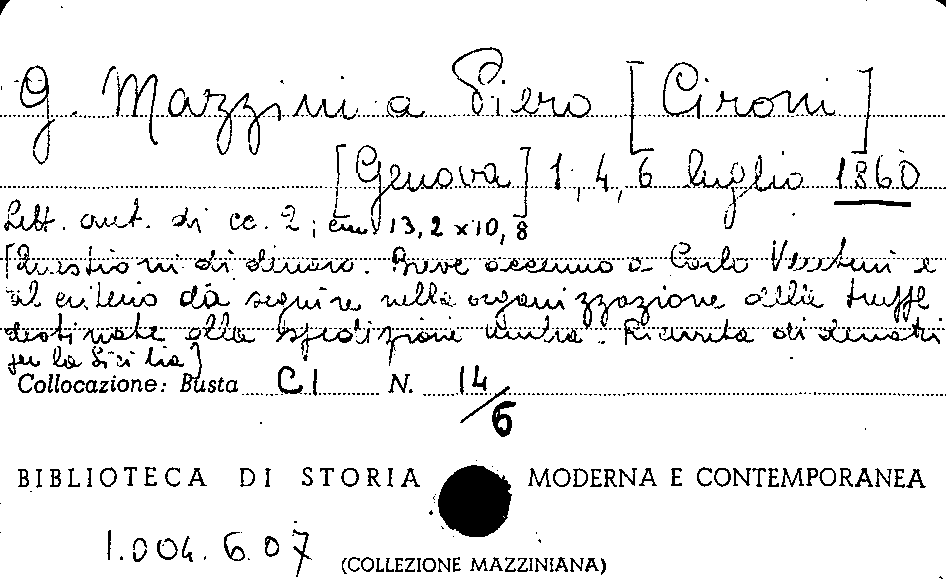 G. Mazzini a Piero [Cironi]
[Genova] 1, 4, 6 luglio 1860
Lett. aut. di cc. 2; cm 13,2 x 10,8
[Questioni di denaro. Breve accenno a Carlo e
al criterio da seguire nella organizzazione delle truppe
destinate alla spedizione umbra. Ricevuta di denari
per la Sicilia]
Collocazione: Busta C I N. 14/6
BIBLIOTECA DI STORIA MODERNA E CONTEMPORANEA
1.004.607
(COLLEZIONE MAZZINIANA)